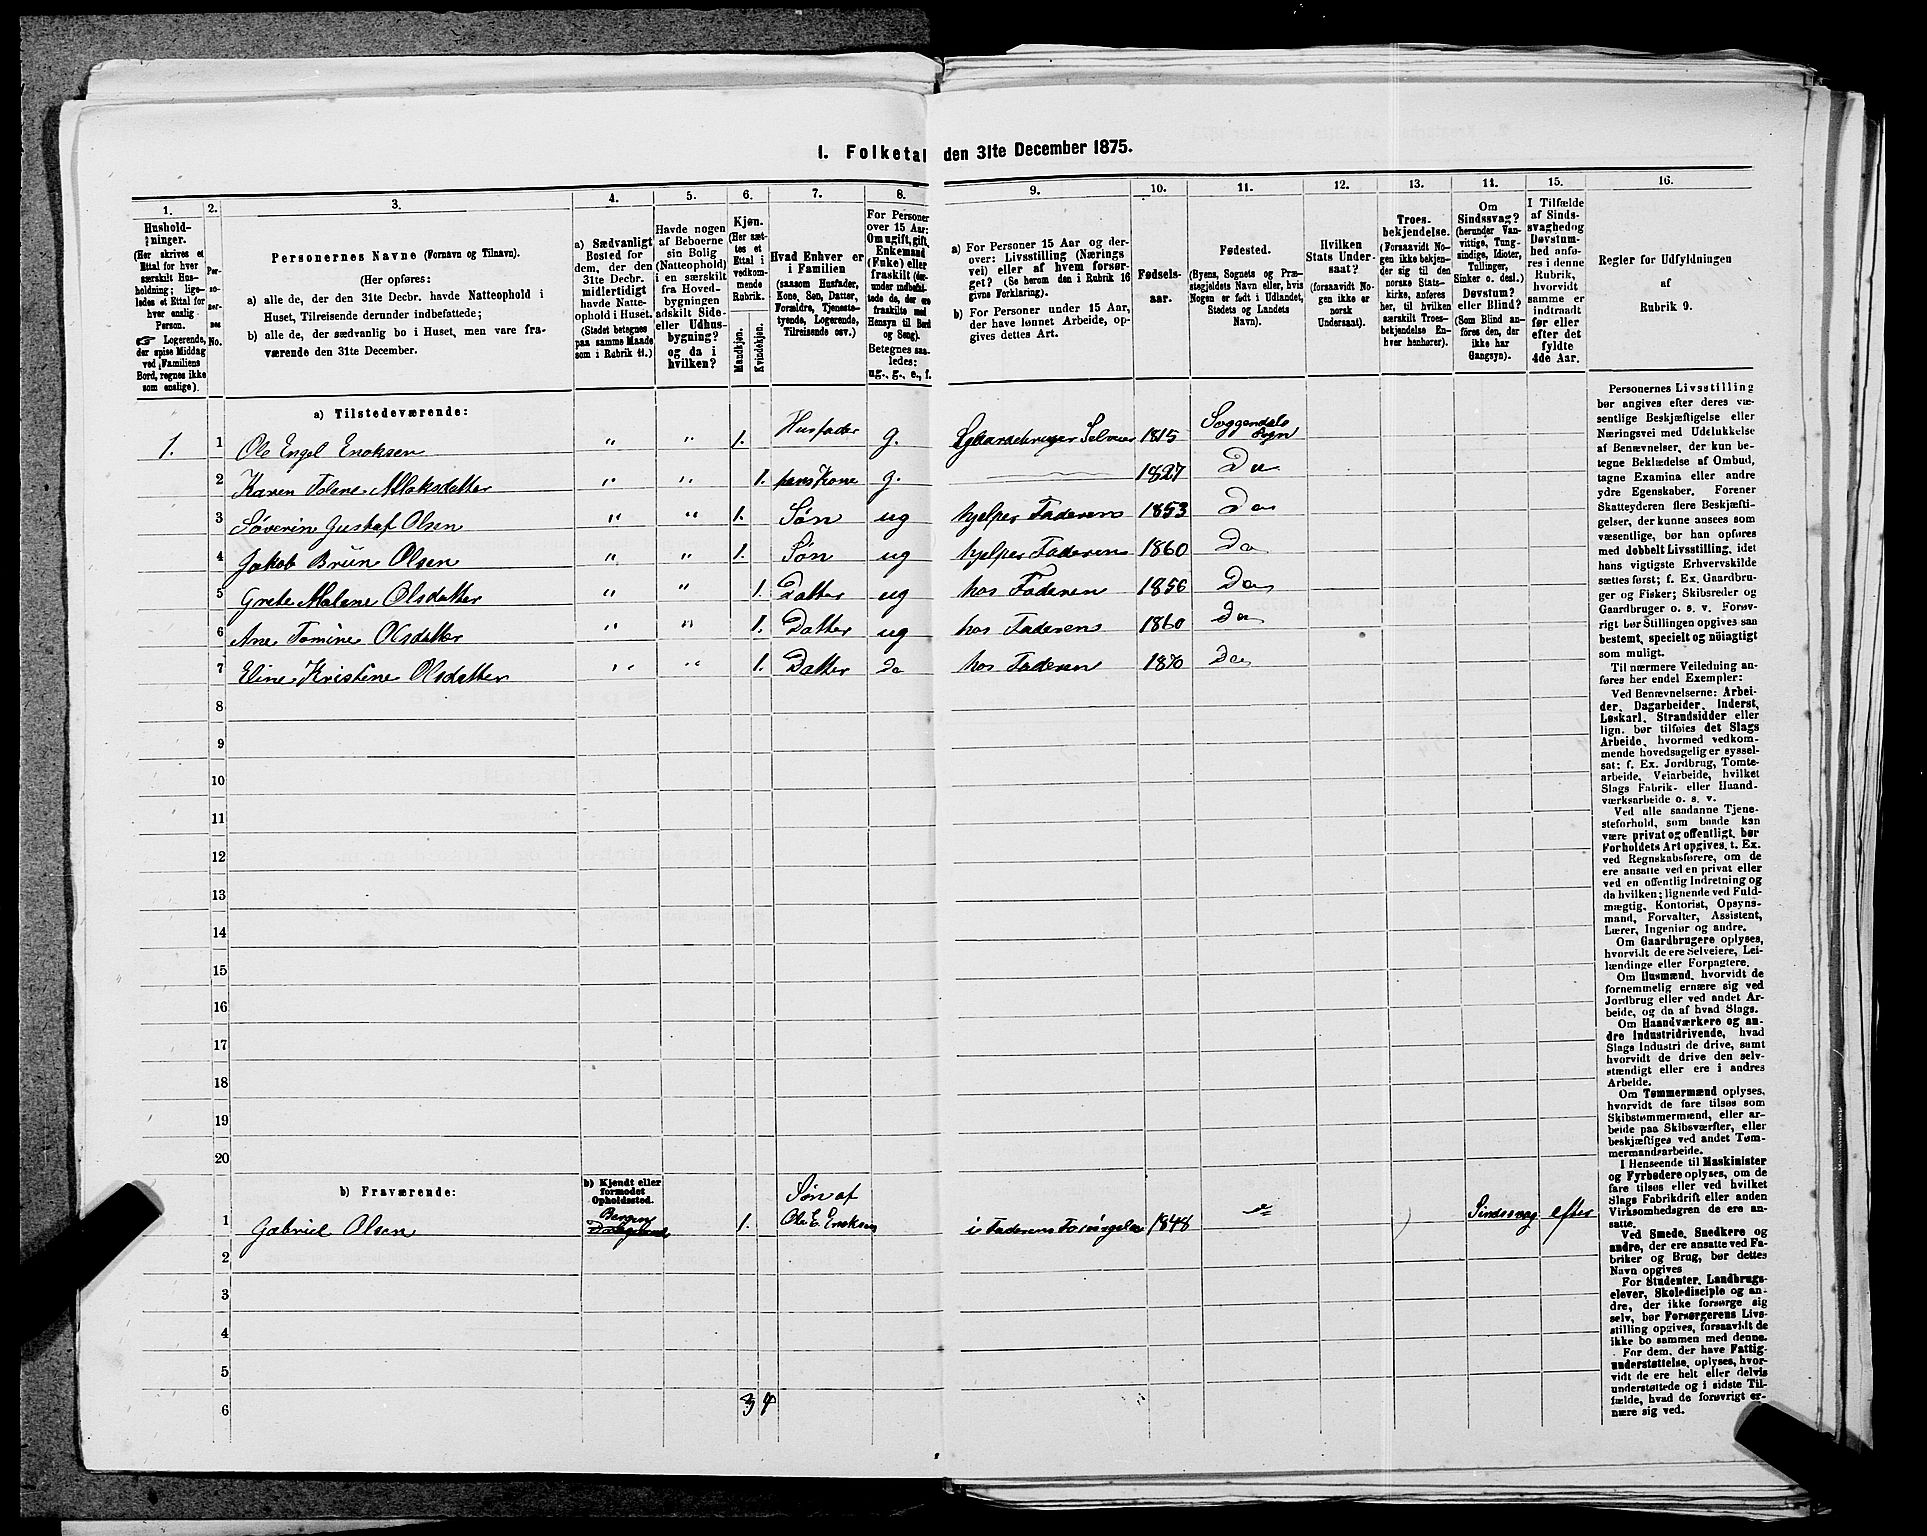 1. Folketal den 31te December 1875.
1. 2. 3. 4. 5. 6. 7. 8. 9. 10. 11. 12. 13. 14. 15. 16.
Hushold-
ninger.
(Her skrives et
Ettal for hver
særskilt Hus-
holdning; lige-
ledes et Ettal for
hver enslig
Person.
☞ Logerende,
der spise Middag
ved Familiens
Bord, regnes ikke
som enslige).
Per-
so-
ner-
nes
No.
Personernes Navne (Fornavn og Tilnavn).
(Her opføres:
a) alle de, der den 31te Decbr. havde Natteophold i
Huset, Tilreisende derunder indbefattede;
b) alle de, der sædvanlig bo i Huset, men vare fra-
værende den 31te December.
a) Sædvanligt
Bosted for
dem, der den
31te Decbr.
midlertidigt
havde Natte-
ophold i Huset.
(Stedet betegnes
paa samme Maade
som i Rubrik 11.)
Havde nogen
af Beboerne
sin Bolig
(Natteophold)
i en særskilt
fra Hoved-
bygningen
adskilt Side-
eller Udhus-
bygning?
og da i
hvilken?
Kjøn.
(Her sæt-
tes et
Ettal i
vedkom-
mende
Rubrik.
Mandkjøn.
Kvindekjøn.
Hvad Enhver er
i Familien
(saasom Husfader,
Kone, Søn, Datter,
Forældre, Tjeneste-
tyende, Logerende,
Tilreisende osv.)
For Personer
over 15 Aar:
Om ugift, gift,
Enkemand
(Enke) eller
fraskilt (der-
under indbefat-
tede de, der ere
fraskilte med
Hensyn til Bord
og Seng).
Betegnes saa-
ledes:
ug., g., e., f.
a) For Personer 15 Aar og der-
over: Livsstilling (Nærings
vei) eller af hvem forsør-
get? (Se herom den i Rubrik 16
givne Forklaring).
b) For Personer under 15 Aar,
der have lønnet Arbeide, op-
gives dettes Art.
Fødsels-
aar.
Fødested.
(Byens, Sognets og Præ-
stegjeldets Navn eller, hvis
Nogen er født i Udlandet,
Stedets og Landets
Navn).
Hvilken
Stats Under-
saat?
(forsaavidt No-
gen ikke er
norsk
Undersaat).
Troes-
bekjendelse.
(Forsaavidt No-
gen ikke bekjen-
der sig til den
norske Stats-
kirke, anføres
her, til hvilken
særskilt Troes-
bekjendelse En-
hver henhører).
Om
Sindssvag?
(herunder Van-
vittige, Tung-
sindige, Idioter,
Tullinger,
Sinker o. desl.)
Døvstum?
eller Blind?
(Som Blind an-
føres den, der
ikke har
Gangsyn).
I Tilfælde
af Sinds-
svaghed og
Døvstum-
hed anfø-
res i denne
Rubrik,
hvorvidt
samme er
indtraadt
før eller
efter det
fyldte
4de Aar.
Regler for Udfyldningen
af
Rubrik 9.
a) Tilstedeværende:
1. 1 Ole Engel Enoksen " " 1. Husfader g. Gaardbruger Selveier 1815 Soggendals Sogn
2 Karen Tolene Aslaksdatter " " 1. hans Kone g. 1827 Do
3 Søverin Gustaf Olsen " " 1. Søn ug hjelper Faderen 1853 Do
4 Jakob Brun Olsen " " 1. Søn ug hjelper Faderen 1860 Do
5 Grete Malene Olsdatter " " 1. Datter ug hos Faderen 1856 Do
6 Ane Tomine Olsdatter " " 1. Datter ug hos Faderen 1860 Do
7 Eline Kristine Olsdatter " " 1. Datter Do hos Faderen 1870 Do
8
9
10
11
12
13
14
15
16
17
18
19
20
b) Fraværende:
b) Kjendt eller
formodet
Opholdssted.
1 Gabriel Olsen Bergen 1. Søn af Ole E. Enoksen i Faderens Forsørgelse 1848 Sindssvag efter
2
3
4
5
6
3 4
Personernes Livsstilling
bør angives efter deres væ-
sentlige Beskjæftigelse eller
Næringsvei med Udelukkelse
af Benævnelser, der kun be-
tegne Beklædelse af Ombud,
tagne Examina eller andre
ydre Egenskaber. Forener
Skatteyderen flere Beskjæfti-
gelser, der kunne ansees som
væsentlige, bør han opføres
med dobbelt Livsstilling, idet
hans vigtigste Erhvervskilde
sættes først; f. Ex. Gaardbru-
ger og Fisker; Skibsreder og
Gaardbruger o. s. v. Forøv-
rigt bør Stillingen opgives saa
bestemt, specielt og nöiagtigt
som muligt.
Til nærmere Veiledning an-
føres her endel Exempler:
Ved Benævnelserne: Arbei-
der, Dagarbeider, Inderst,
Løskarl, Strandsidder eller
lign. bør tilføies det Slags
Arbeide, hvormed vedkom-
mende hovedsagelig er syssel-
sat; f. Ex. Jordbrug, Tomte-
arbeide, Veiarbeide, hvilket
Slags Fabrik- eller Haand-
værksarbeide o. s. v.
Ved alle saadanne Tjene-
steforhold, som baade kan
være privat og offentligt, bør
Forholdets Art opgives. t. Ex.
ved Regnskabsførere, om de
ere ansatte ved en privat eller
ved en offentlig Indretning og
da hvilken; lignende ved Fuld-
mægtig, Kontorist, Opsyns-
mand, Forvalter, Assistent,
Lærer, Ingeniør og andre.
Om Gaardbrugere oplyses,
hvorvidt de ere Selveiere, Lei-
lændinge eller Forpagtere.
Om Husmænd, hvorvidt de
fornemmelig ernære sig ved
Jordbrug eller ved andet Ar-
beide, og da af hvad Slags.
Om Haandværkere og an-
dre Industridrivende, hvad
Slags Industri de drive, samt
hvorvidt de drive den selv-
stændigt eller ere i andres
Arbeide.
Om Tømmermænd oplyses,
hvorvidt de fare tilsøs som
Skibstømmermænd, eller ar-
beide paa Skibsværfter, eller
beskjæftiges ved andet Tøm-
mermandsarbeide.
I Henseende til Maskinister
og Fyrbødere oplyses, om de
fare tilsøs eller ved hvilket
Slags Fabrikdrift eller anden
Virksomhedsgren de ere an-
satte.
Ved Smede, Snedkere og
andre, der ere ansatte ved Fa-
briker og Brug, bør dettes
Navn opgives
For Studenter, Landbrugs-
elever, Skoledisciple og an-
dre, der ikke forsørge sig
selv, bør Forsørgerens Livs-
stilling opgives, forsaavidt de
ikke bo sammen med denne.
For dem, der have Fattig-
understøttelse, oplyses, hvor-
vidt de ere helt eller delvis
understøttede og i sidste Til-
fælde, hvad de forøvrigt er-
nære sig ved.